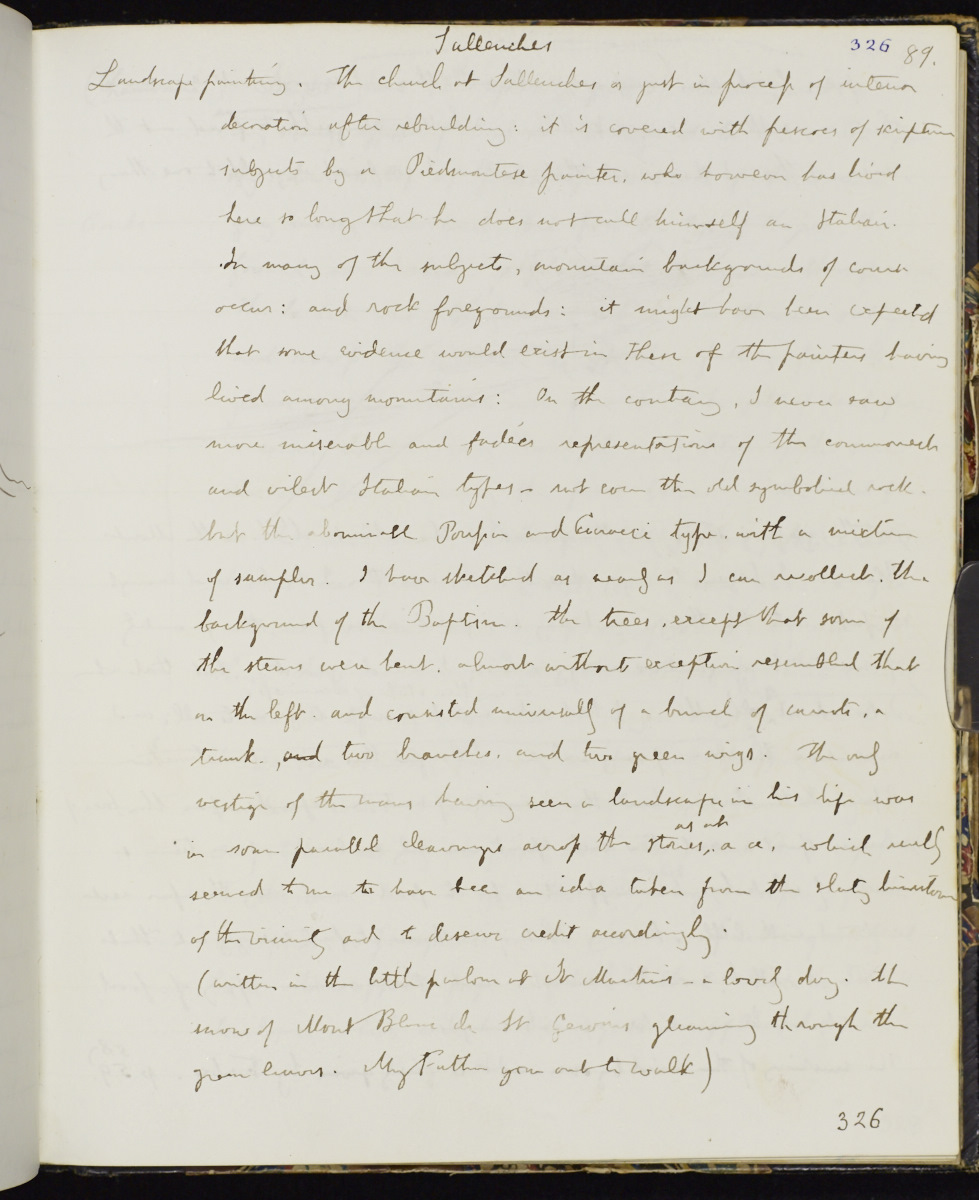 Sallenches
326 89.
Landscape painting. The church at Sallenches is just in process of interior
decoration after rebuilding: it is covered with frescoes of scripture
subjects by a Piedmontese painter, who however has lived
here so long that he does not call himself an Italian.
In many of the subjects, mountain backgrounds of course
occur: and rock foregrounds: it might have been expected
that some evidence would exist in these of the painters having
lived among mountains: On the contrary, I never saw
more miserable and fadées representations of the commonest
and vilest Italian types - not even the old symbolical rock.
but the abominable Poussin and Caracci type. with a mixture
of sampler. I have sketched as nearly as I can recollect, the
background of the Baptism. The trees, except that some of
the stems were bent, almost without exception resembled that
on the left. and consisted universally of a bunch of carrots, a
trunk, and two branches, and two green wigs. The only
vestige of the mans having seen a landscape in his life was
in some parallel cleavages across the stones, as at a a, which really
seemed to me to have been an idea taken from the slaty limestone
of the vicinity and to deserve credit accordingly.
(written in the little parlour at St Martins - a lovely day. The
snow of Mont Blanc de St Gervais gleaming through the
green leaves. My Father gone out to walk)
326